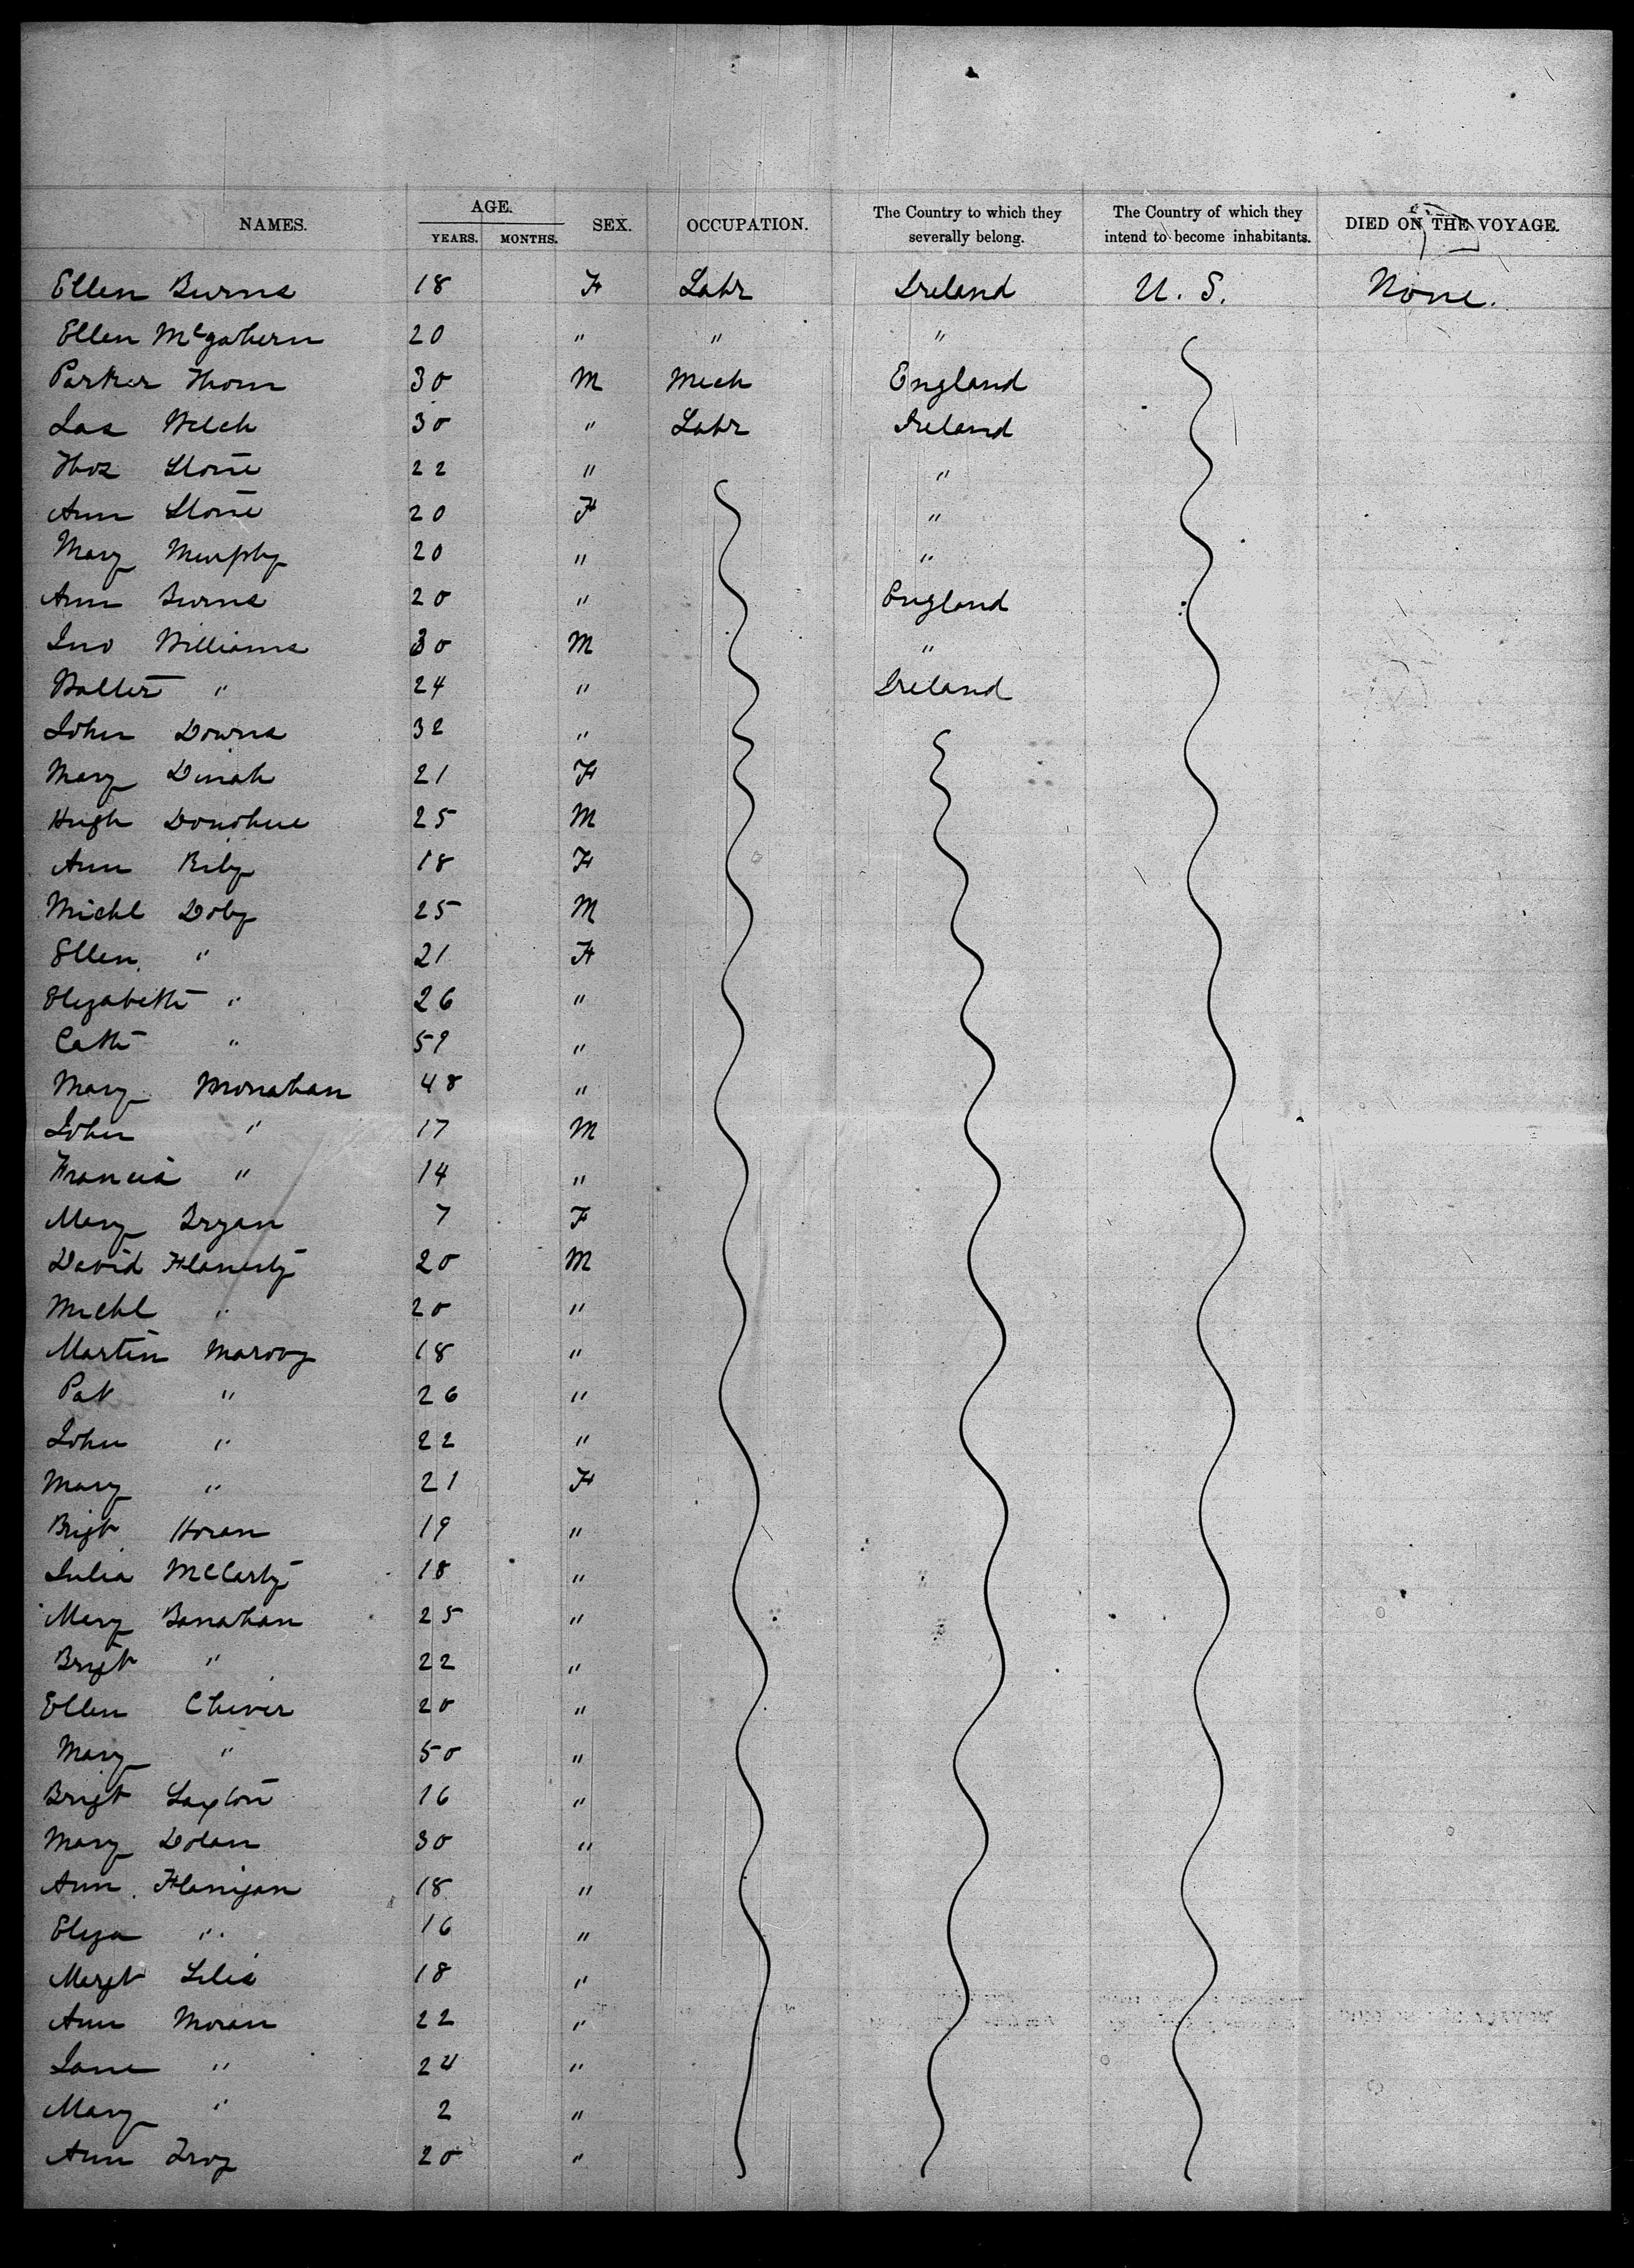 NAMES. AGE. YEARS. MONTHS. SEX. OCCUPATION. The Country to which they severally belong. The Country of which they intend to become inhabitants. DIED ON THE VOYAGE.
Ellen Burns 18 F Labr Ireland U. S. None.
Ellen McGahern 20 " " "
Parker Thom 30 M Mech England
Jas Welch 30 " Labr Ireland
Thos Stone 22 " "
Ann Stone 20 F "
Mary Murphy 20 " "
Ann Burns 20 " England
Jno Williams 30 M "
Walter " 24 " Ireland
John Downs 32 "
Mary Dinah 21 F
Hugh Donohue 25 M
Ann Rily 18 F
Michl Doby 25 M
Ellen " 21 F
Elizabeth " 26 "
Cath " 59 "
Mary Monahan 48 "
John " 17 M
Francis " 14 "
Mary Bryan 7 F
David Flanerty 20 M
Michl " 20 "
Martin Marooy 18 "
Pat " 26 "
John " 22 "
Mary " 21 F
Brigt Horan 19 "
Julia McCarty 18 "
Mary Banahan 25 "
Brigt " 22 "
Ellen Chiver 20 "
Mary " 50 "
Brigt Laxton 16 "
Mary Dolan 30 "
Ann Flanigan 18 "
Eliza " 16 "
Margt Lilis 18 "
Ann Moran 22 "
Jane " 24 "
Mary " 2 "
Ann Troy 20 "